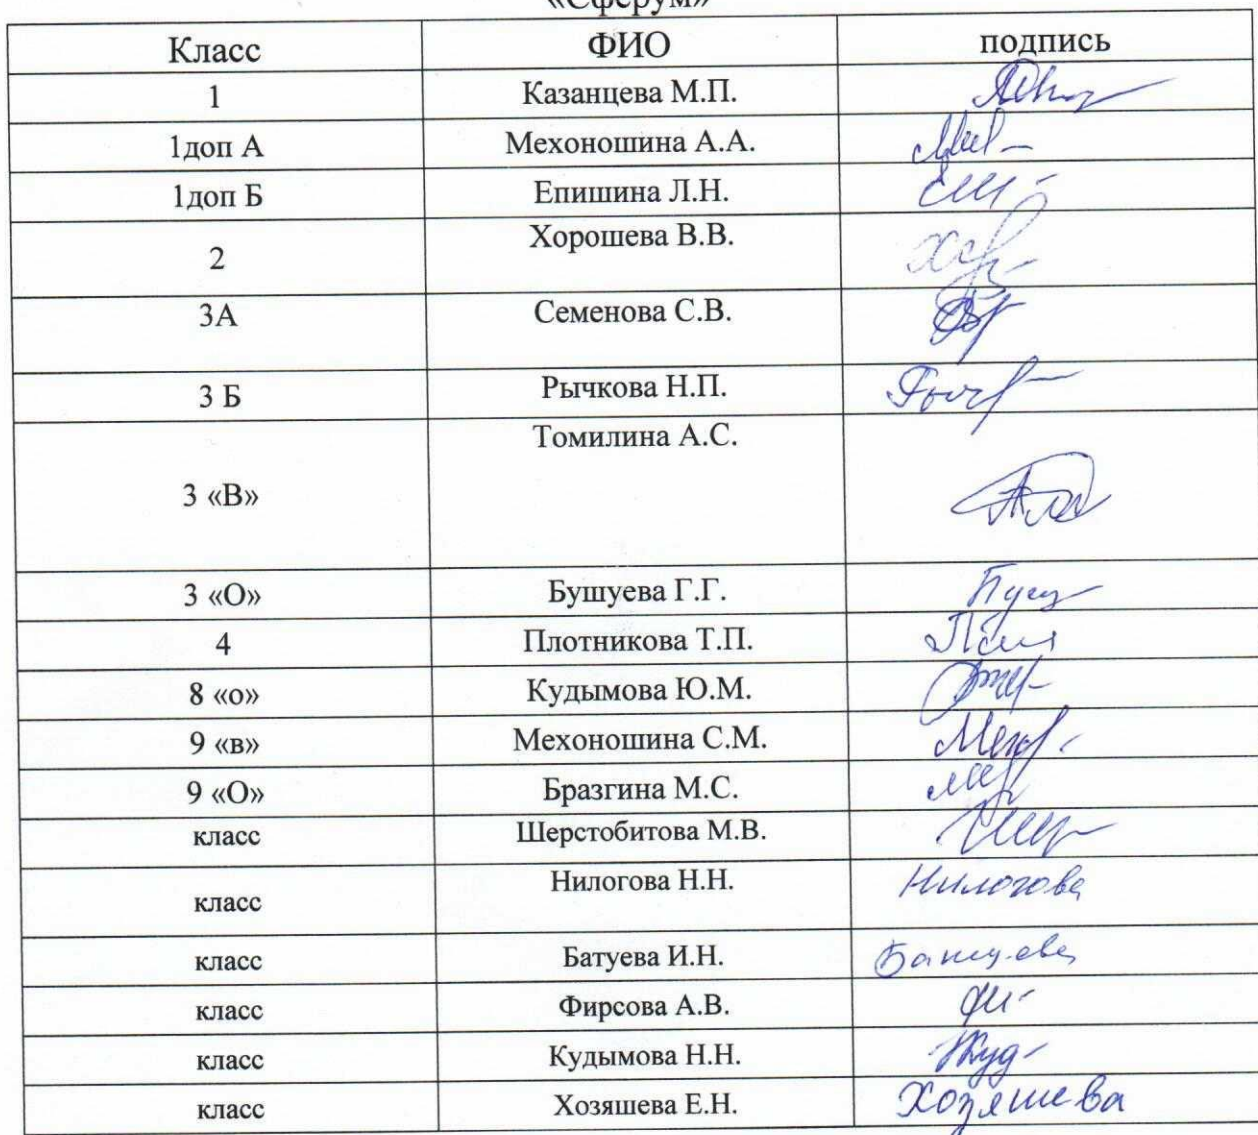 «Сферум»
Класс ФИО подпись
1 Казанцева М.П.
1доп А Мехоношина А.А.
1доп Б Епишина Л.Н.
2 Хорошева В.В.
3А Семенова С.В.
3 Б Рычкова Н.П.
3 «В» Томилина А.С.
3 «О» Бушуева Г.Г.
4 Плотникова Т.П.
8 «о» Кудымова Ю.М.
9 «в» Мехоношина С.М.
9 «О» Бразгина М.С.
класс Шерстобитова М.В.
класс Нилогова Н.Н. Нилогова
класс Батуева И.Н. Батуева
класс Фирсова А.В.
класс Кудымова Н.Н.
класс Хозяшева Е.Н. Хозяшева